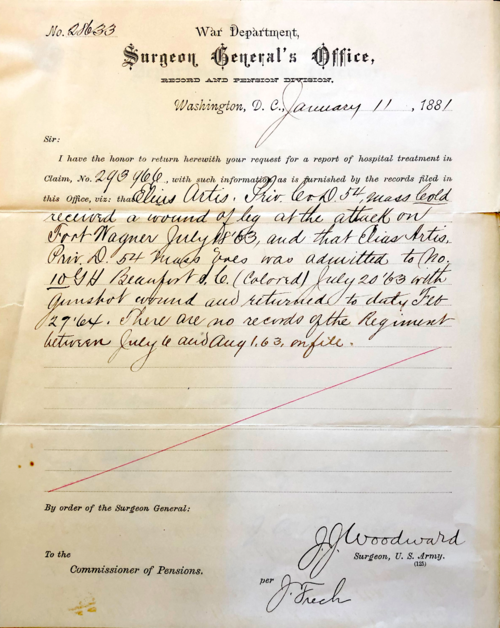 No. 28633
War Department,
Surgeon General's Office,
RECORD AND PENSION DIVISION,
Washington, D. C., January 11, 1881
Sir:
I have the honor to return herewith your request for a report of hospital treatment in
Claim, No. 293966, with such information as is furnished by the records filed in
this Office, viz: that Elias Artis. Priv. Co D. 54, mass Cold
received a wound of leg at the attack on
Fort Wagner July 18 '63, and that Elias Artis,
Priv. D. 54 mass was admitted to No.
10 G H Beaufort S. C. (Colored) July 20 '63 with
gunshot wound and returned to duty Feb
29 '64. There are no records of the Regiment
between July 6 and Aug 1. 63, on file.
By order of the Surgeon General:
J. J. Woodward
Surgeon, U. S. Army.
(125)
To the
Commissioner of Pensions.
per